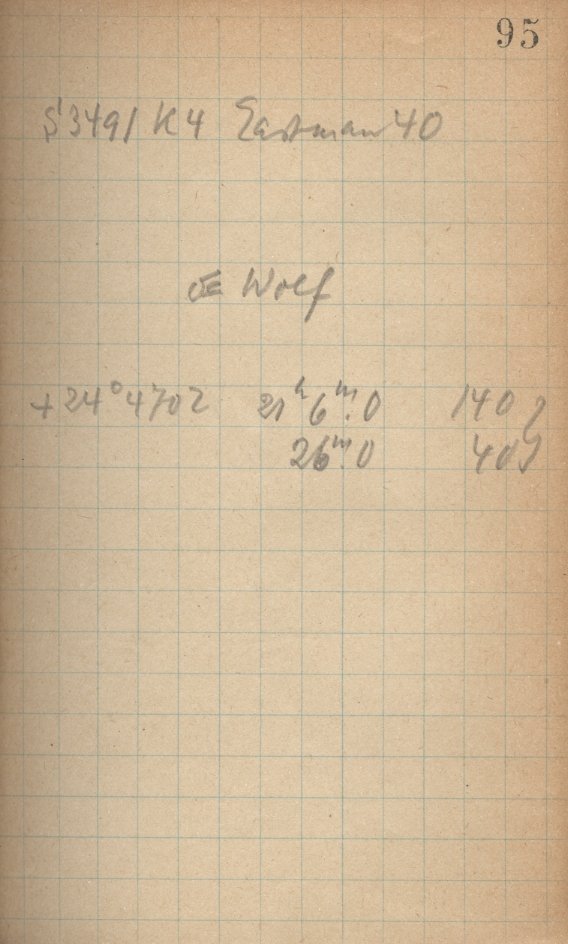 95
S 3491 K4 Eastman 40
Wolf
+24°4702 21h 6m.0 140
26m.0 40